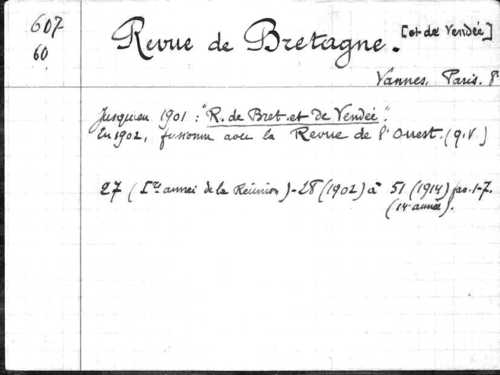 607
60
Revue de Bretagne. [et de Vendée]
Vannes. Paris. 8°
Jusqu'en 1901 : "R. de Bret. et de Vendée".
En 1902, fusionne avec la Revue de l'Ouest. (q.v.)
27 (1re année de la Réunion) - 28 (1902) à 51 (1914) 1-7.
(14e année).